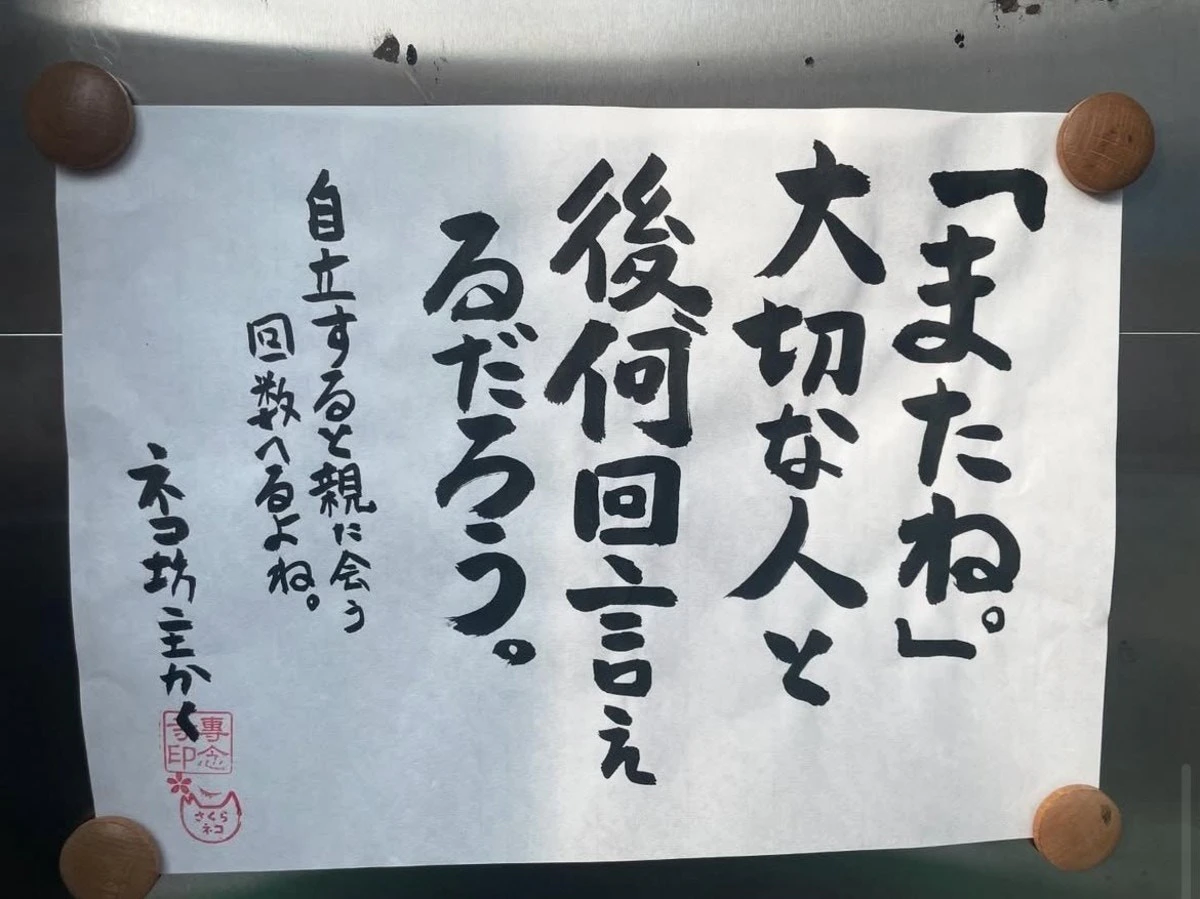 「またね。」
大切な人と
後何回言え
るだろう。
自立すると親に会う
回数へるよね。
ネコ坊主かく
專念
寺印
さくら
ネコ